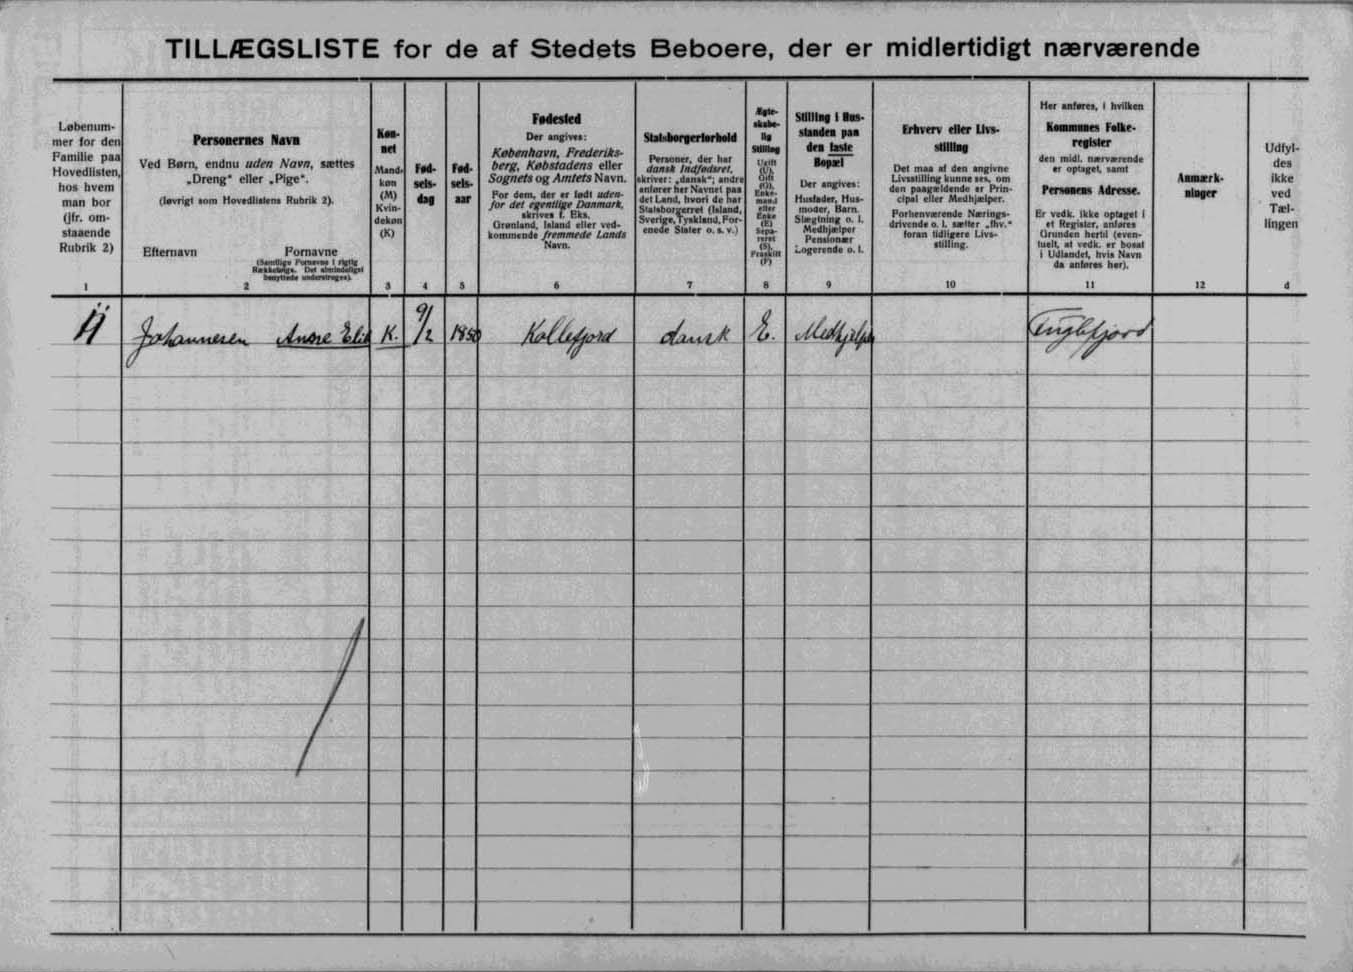 TILLÆGSLISTE for de af Stedets Beboere, der er midlertidigt nærværende
Løbenum-
mer for den
Familie paa
Hovedlisten,
hos hvem
man bor
(jfr. om-
staaende
Rubrik 2)
1
Personernes Navn
Ved Børn, endnu uden Navn, sættes
„Dreng“ eller „Pige“.
(Iøvrigt som Hovedlistens Rubrik 2).
Efternavn Fornavne
(Samtlige Fornavne i rigtig
Rækkefølge. Det almindeligst
benyttede understreges).
2
Køn-
net
Mand-
køn
(M)
Kvin-
dekøn
(K)
3
Fød-
sels-
dag
4
Fød-
sels-
aar
5
Fødested
Der angives:
København, Frederiks-
berg, Købstadens eller
Sognets og Amtets Navn.
For dem, der er født uden-
for det egentlige Danmark,
skrives f. Eks.
Grønland, Island eller ved-
kommende fremmede Lands
Navn.
6
Statsborgerforhold
Personer, der har
dansk Indfødsret,
skriver: „dansk“; andre
anfører her Navnet paa
det Land, hvori de har
Statsborgerret (Island,
Sverige, Tyskland, For-
enede Stater o. s. v.)
7
Ægte-
skabe-
lig
Stilling
Ugift
(U),
Gift
(G),
Enke-
mand
eller
Enke
(E)
Sepa-
reret
(S),
Fraskilt
(F)
8
Stilling i Hus-
standen paa
den faste
Bopæl
Der angives:
Husfader, Hus-
moder, Barn,
Slægtning o. l.
Medhjælper
Pensionær
Logerende o. l.
9
Erhverv eller Livs-
stilling
Det maa af den angivne
Livsstilling kunne ses, om
den paagældende er Prin-
cipal eller Medhjælper.
Forhenværende Nærings-
drivende o. l. sætter „fhv.“
foran tidligere Livs-
stilling.
10
Her anføres, i hvilken
Kommunes Folke-
register
den midl. nærværende
er optaget, samt
Personens Adresse.
Er vedk. ikke optaget i
et Register, anføres
Grunden hertil (even-
tuelt, at vedk. er bosat
i Udlandet, hvis Navn
da anføres her).
11
Anmærk-
ninger
12
Udfyl-
des
ikke
ved
Tæl-
lingen
d
Johannesen K. 9/2 1850 Kollefjord dansk E. Medhjælper Fuglefjord